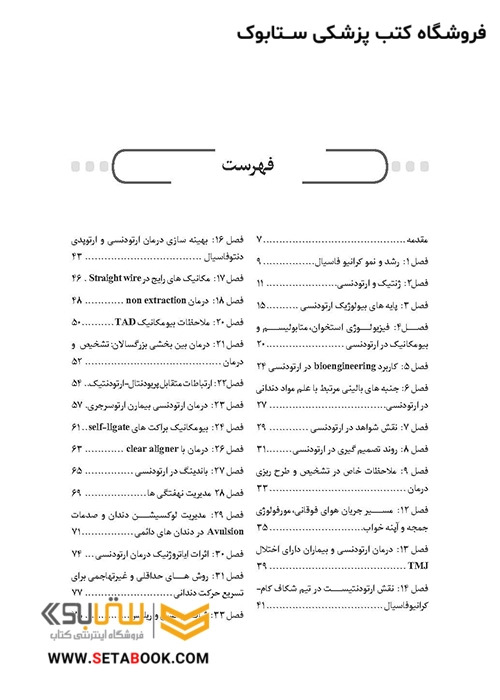 فروشگاه کتب پزشکی ستابوک
فهرست
مقدمه ........ ۷
فصل ۱: رشد و نمو کرانیو فاسیال ........ ۹
فصل۲: ژنتیک و ارتودنسی ........ ۱۱
فصل ۳: پایه های بیولوژیک ارتودنسی ........ ۱۵
فصل۴: فیزیولوژی استخوان، متابولیسم و
بیومکانیک در ارتودنسی ........ ۲۰
فصل ۵: کاربرد bioengineering در ارتودنسی ۲۴
فصل ۶: جنبه های بالینی مرتبط با علم مواد دندانی
در ارتودنسی ........ ۲۷
فصل ۷: نقش شواهد در ارتودنسی ........ ۲۹
فصل ۸: روند تصمیم گیری در ارتودنسی ........ ۳۱
فصل ۹: ملاحظات خاص در تشخیص و طرح ریزی
درمان ........ ۳۳
فصل ۱۲: مسیر جریان هوای فوقانی، مورفولوژی
جمجه و آپنه خواب ........ ۳۵
فصل ۱۳: درمان ارتودنسی و بیماران دارای اختلال
TMJ ........ ۳۹
فصل ۱۴: نقش ارتودنتیست در تیم شکاف کام-
کرانیوفاسیال ........ ۴۱
فصل ۱۶: بهینه سازی درمان ارتودنسی و ارتوپدی
دنتوفاسیال ........ ۴۳
فصل ۱۷: مکانیک های رایج در Straight wire . ۴۶
فصل ۱۸: درمان non extraction ........ ۴۸
فصل ۲۰: ملاحظات بیومکانیک TAD ........ ۵۰
فصل ۲۱: درمان بین بخشی بزرگسالان: تشخیص و
درمان ........ ۵۲
فصل۲۲: ارتباطات متقابل پریودنتال-ارتودنتیک.. ۵۴
فصل ۲۳: درمان ارتودنسی بیمارن ارتوسرجری. ۵۷
فصل ۲۴: بیومکانیک براکت های self-ligate.. ۶۱
فصل ۲۶: درمان با clear aligner ........ ۶۳
فصل ۲۷: باندینگ در ارتودنسی ........ ۶۵
فصل ۲۸ مدیریت نهفتگی ها ........ ۶۹
فصل ۲۹: مدیریت لوکسیشن دندان و صدمات
Avulsion در دندان های دائمی ........ ۷۱
فصل ۳۰: اثرات ایاتروژنیک درمان ارتودنسی ... ۷۴
فصل ۳۱: روش های حداقلی و غیرتهاجمی برای
تسریع حرکت دندانی ........ ۷۷
فصل ۳۳:
ستابوک
فروشگاه اینترنتی کتاب
WWW.SETABOOK.COM